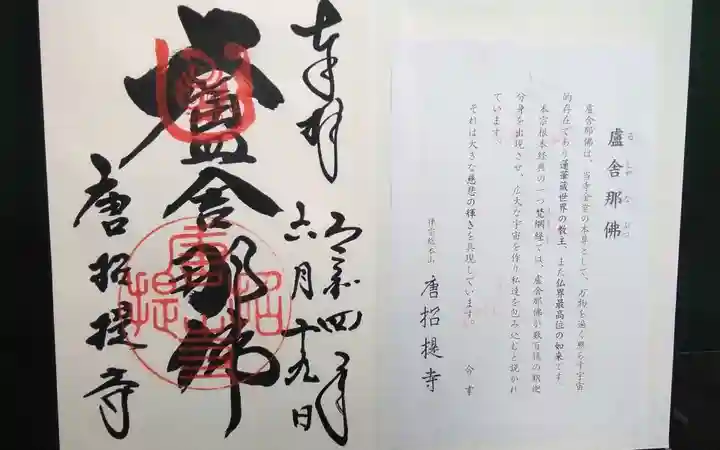 奉拝
令和四年
六月十九日
盧舎那佛
唐招提寺
唐招提寺
盧舎那佛
るしゃなぶつ
盧舎那佛は、当寺金堂の本尊として、万物を遍く照らす宇宙
的存在であり蓮華蔵世界の教主、また仏界最高位の如来です。
本宗根本経典の一つ梵網経では、盧舎那佛が数百億の釈迦
分身を出現させ、広大な宇宙を作り私達を包み込むと説かれ
ています。
それは大きな慈悲の輝きを具現しています。
合掌
律宗総本山
唐招提寺